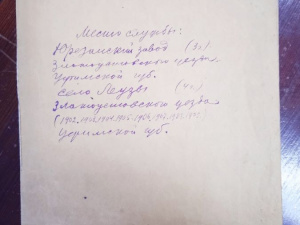 Место службы:
Юрезанский завод (3 г.)
Златоустовского уезда
Уфимской губ.
село Леузы
Златоустовского уезда
Уфимской губ.